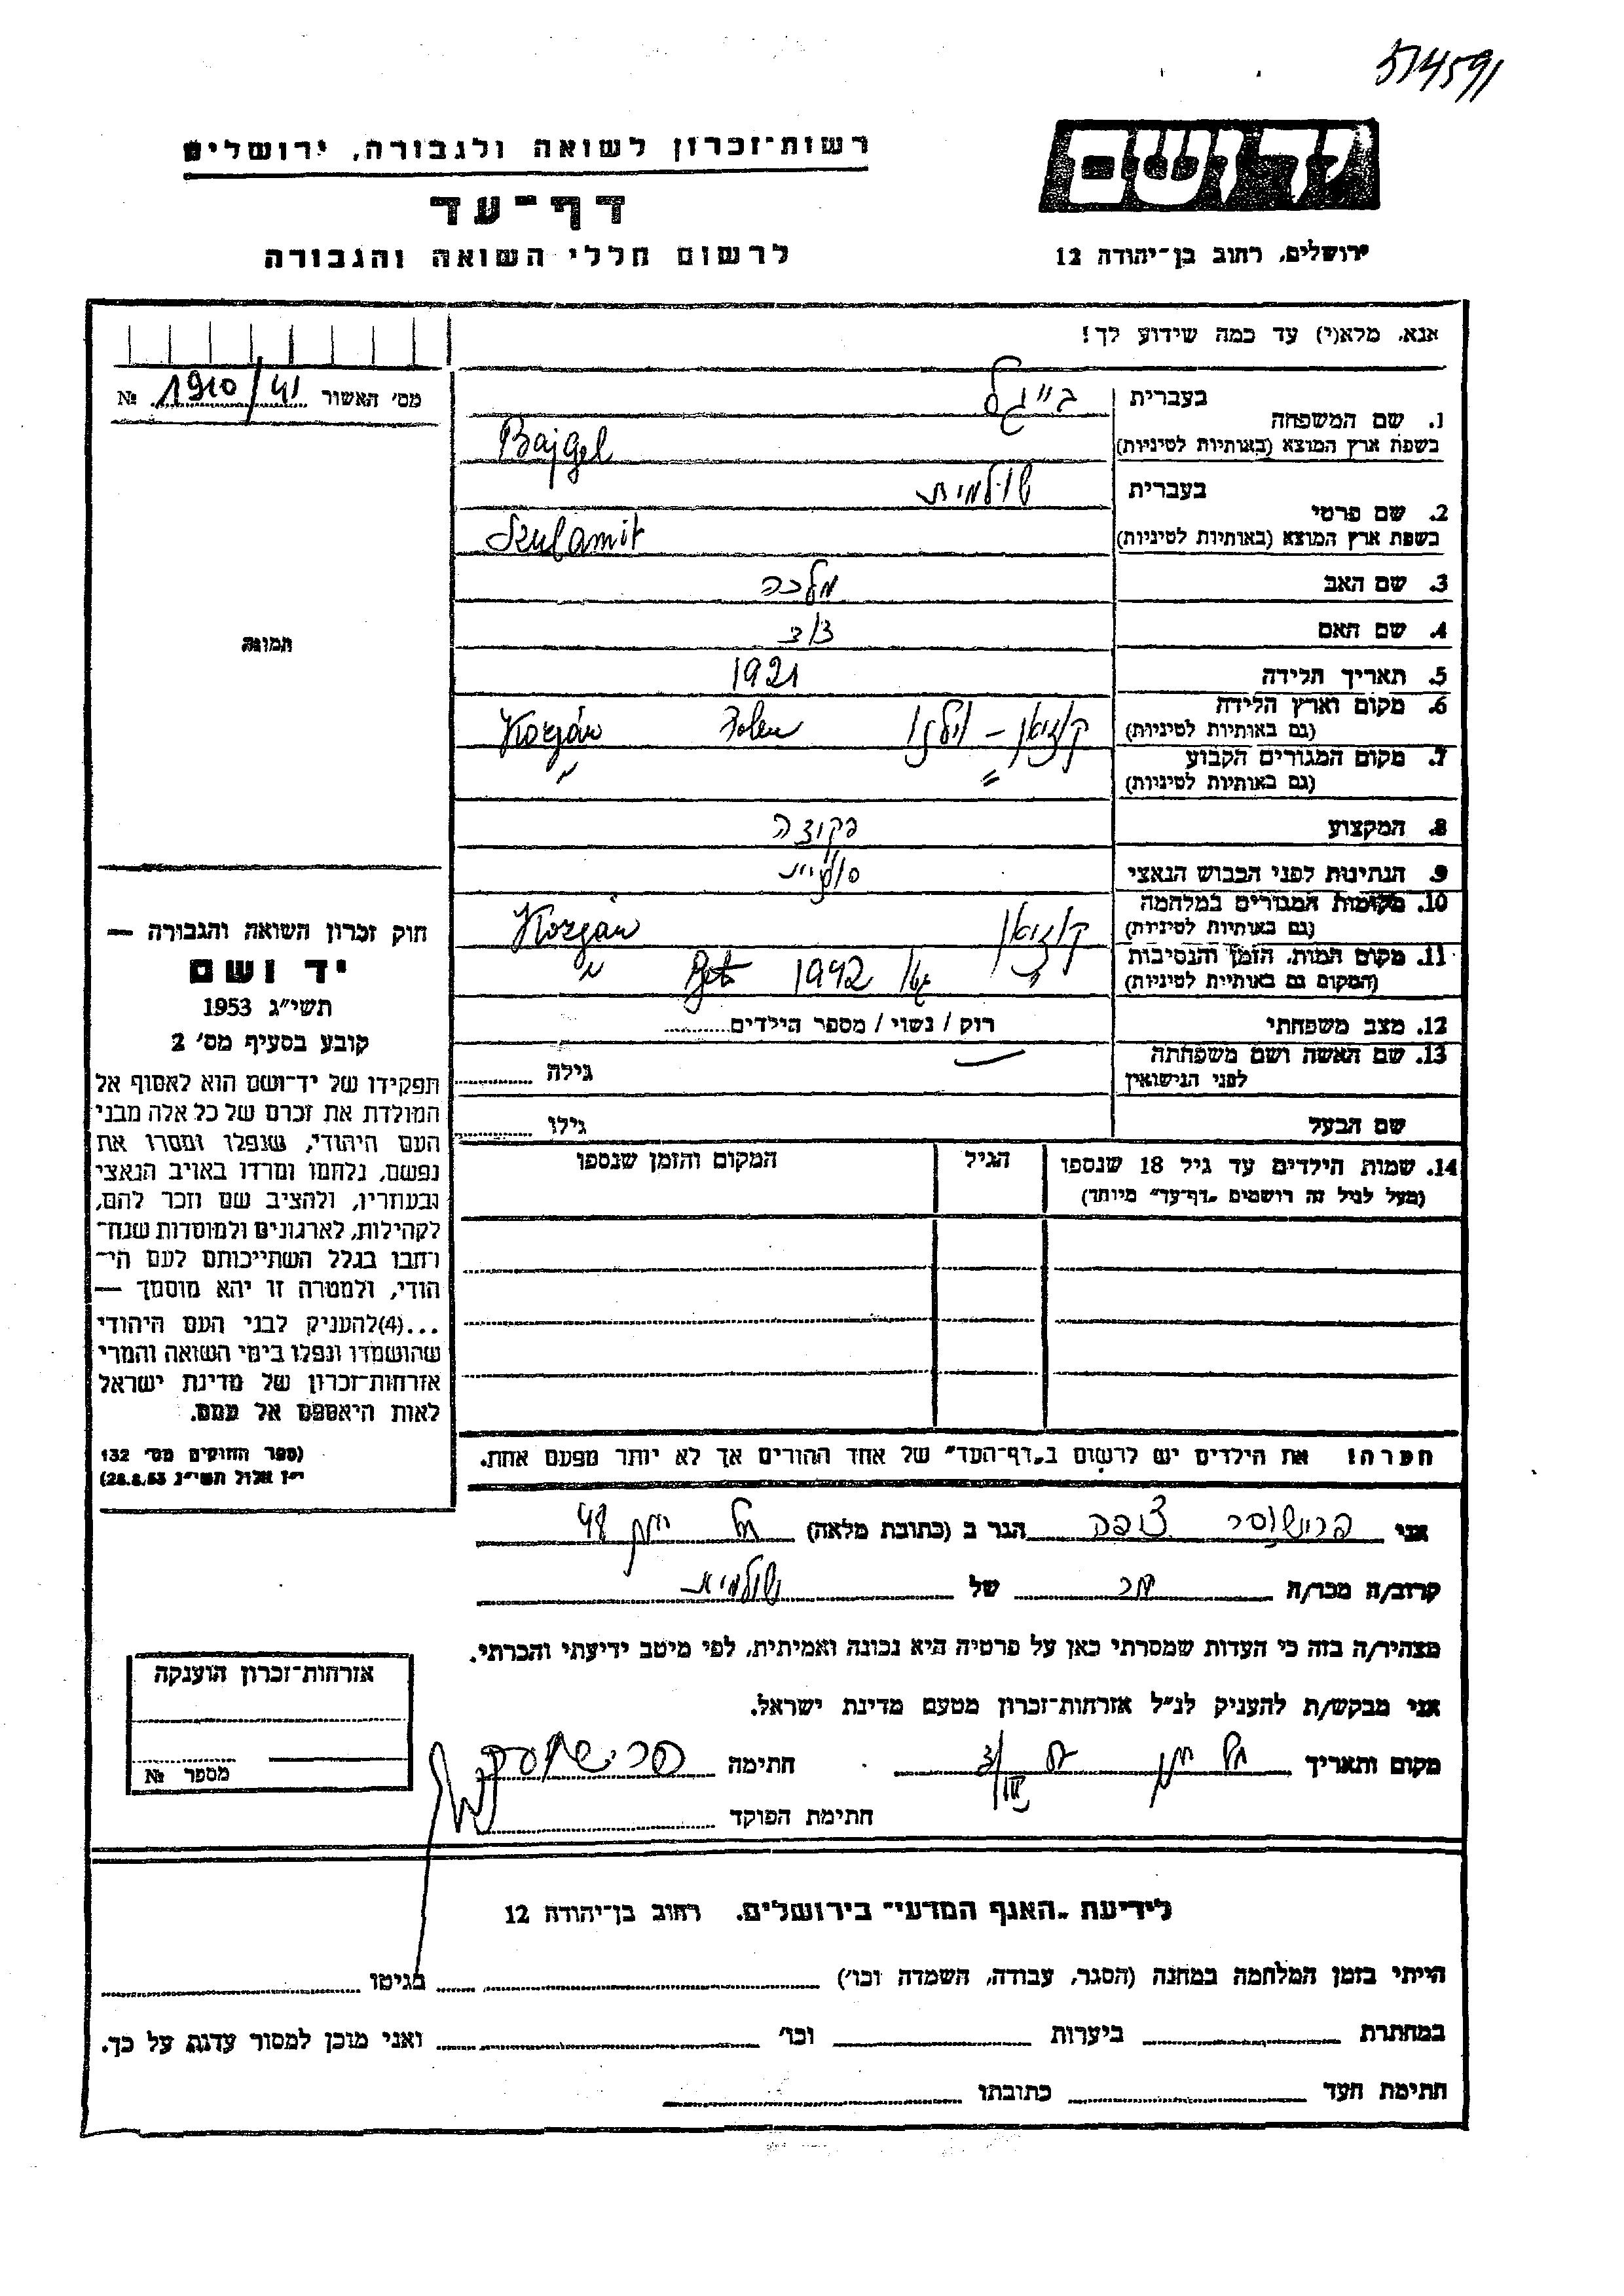 514591
רשות-זכרון לשואה ולגבורה, ירושלים
דף-עד
לרשום חללי השואה והגבורה
יד ושם
ירושלים, רחוב בן-יהודה 12
אנא, מלא(י) עד כמה שידוע לך!
מס' האשור 1910/41 №
1. שם המשפחה
בעברית בייגל
בשפת ארץ המוצא (באותיות לטיניות) Bajgel
2. שם פרטי
בעברית שולמית
בשפת ארץ המוצא (באותיות לטיניות) Szulamit
3. שם האב מלכה
4. שם האם
5. תאריך הלידה 1921
6. מקום וארץ הלידה
(גם באותיות לטיניות) קוזיאן - וילנו Polen Kozján
7. מקום המגורים הקבוע
(גם באותיות לטיניות) "
8. המקצוע
9. הנתינות לפני הכבוש הנאצי
10. מקומות המגורים במלחמה
(גם באותיות לטיניות) קוזיאן Kozján
11. מקום המות, הזמן והנסיבות
(המקום גם באותיות לטיניות) " גטו 1942 "
12. מצב משפחתי רוק / נשוי / מספר הילדים
13. שם האשה ושם משפחתה
לפני הנישואין
גילה
שם הבעל
גילו
14. שמות הילדים עד גיל 18 שנספו
(מעל לגיל זה רושמים "דף-עד" מיוחד)
הגיל
המקום והזמן שנספו
הערה! את הילדים יש לרשום ב"דף-העד" של אחד ההורים אך לא יותר מפעם אחת.
תמונה
חוק זכרון השואה והגבורה —
יד ושם
תשי"ג 1953
קובע בסעיף מס' 2
תפקידו של יד-ושם הוא לאסוף אל
המולדת את זכרם של כל אלה מבני
העם היהודי, שנפלו ומסרו את
נפשם, נלחמו ומרדו באויב הנאצי
ובעוזריו, ולהציב שם וזכר להם,
לקהילות, לארגונים ולמוסדות שנח-
רחבו בגלל השתייכותם לעם הי-
הודי, ולמטרה זו יהא מוסמך —
...(4)להעניק לבני העם היהודי
שהושמדו ונפלו בימי השואה והמרי
אזרחות-זכרון של מדינת ישראל
לאות היאספם אל עמם.
(ספר החוקים מס' 132
י"ז אלול תשי"ג 28.8.53)
אני צופה הגר ב (כתובת מלאה) 48
קרוב/ה מכר/ה של שולמית
מצהיר/ה בזה כי העדות שמסרתי כאן על פרטיה היא נכונה ואמיתית, לפי מיטב ידיעתי והכרתי.
אני מבקש/ת להעניק לנ"ל אזרחות-זכרון מטעם מדינת ישראל.
מקום ותאריך חתימה
חתימת הפוקד
אזרחות-זכרון הוענקה
מספר №
לידיעת "האגף המדעי" בירושלים. רחוב בן-יהודה 12
הייתי בזמן המלחמה במחנה (הסגר, עבודה, השמדה וכו') בגיטו
במחתרת ביערות וכו' ואני מוכן למסור עדות על כך.
חתימת העד כתובתו